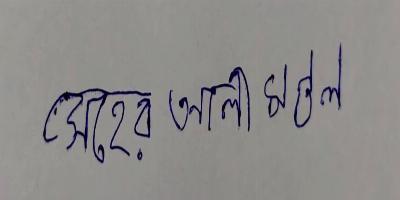 মেহের আলী মণ্ডল